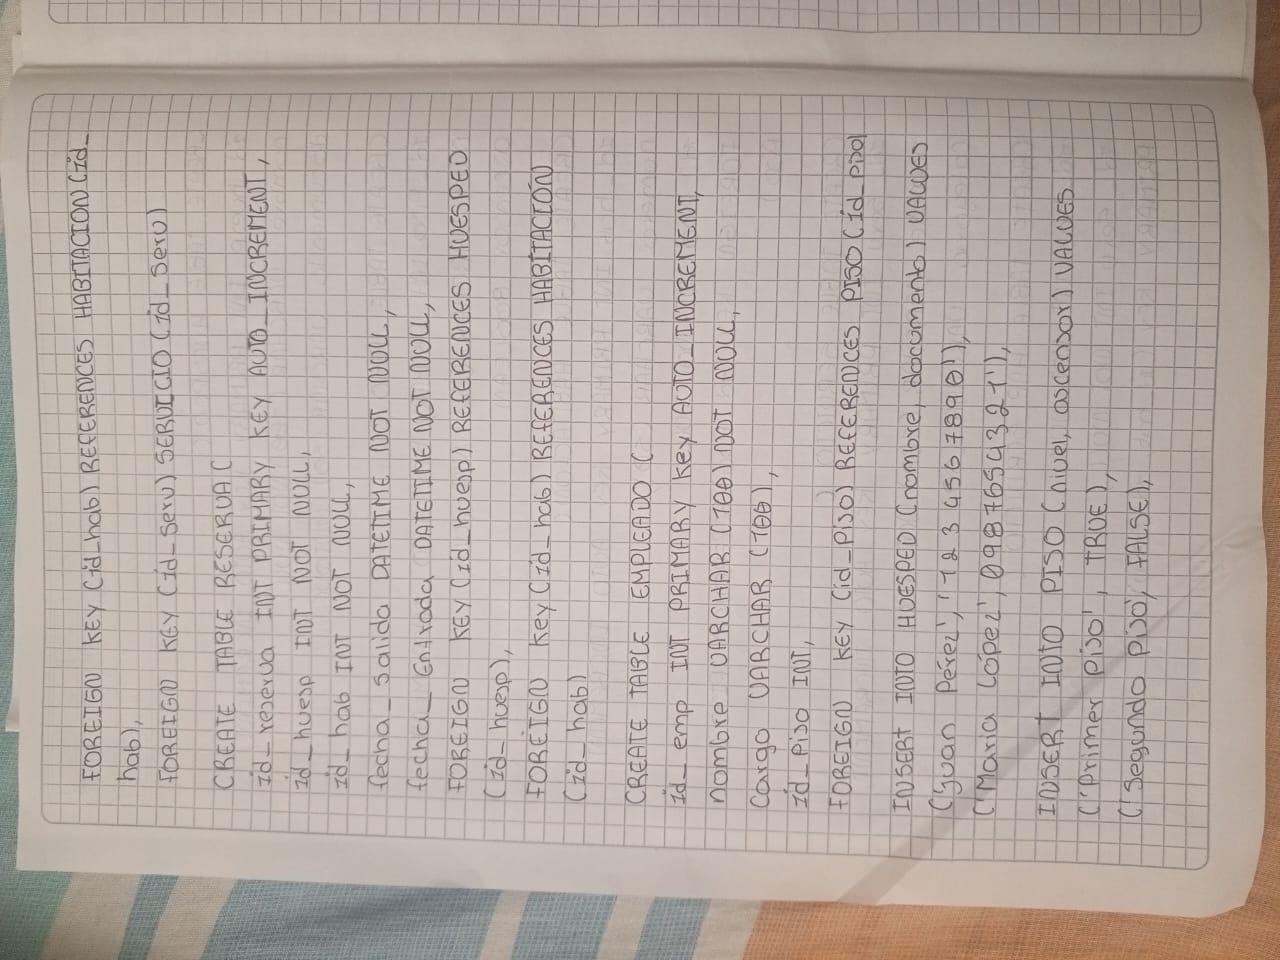 FOREIGN KEY (id_hab) REFERENCES HABITACION (id_
hab),
FOREIGN KEY (id_serv) SERVICIO (id_serv)
CREATE TABLE RESERVA (
id_reserva INT PRIMARY KEY AUTO_INCREMENT,
id_huesp INT NOT NULL,
id_hab INT NOT NULL,
fecha_salida DATETIME NOT NULL,
fecha_Entrada DATETIME NOT NULL,
FOREIGN KEY (id_huesp) REFERENCES HUESPED
(id_huesp),
FOREIGN Key (id_hab) REFERENCES HABITACIÓN
(id_hab)
CREATE TABLE EMPLEADO (
id_emp INT PRIMARY Key AUTO_INCREMENT,
nombre VARCHAR (100) NOT NULL,
Cargo VARCHAR (100),
id_Piso INT,
FOREIGN KEY (id_Piso) REFERENCES PISO (id_piso)
INSERT INTO HUESPED (nombre, documento) VALUES
('Juan Pérez', '1234567890'),
('Maria López', 0987654321'),
INSERT INTO PISO (nivel, ascensor) VALUES
('Primer piso', TRUE),
('Segundo piso', FALSE),